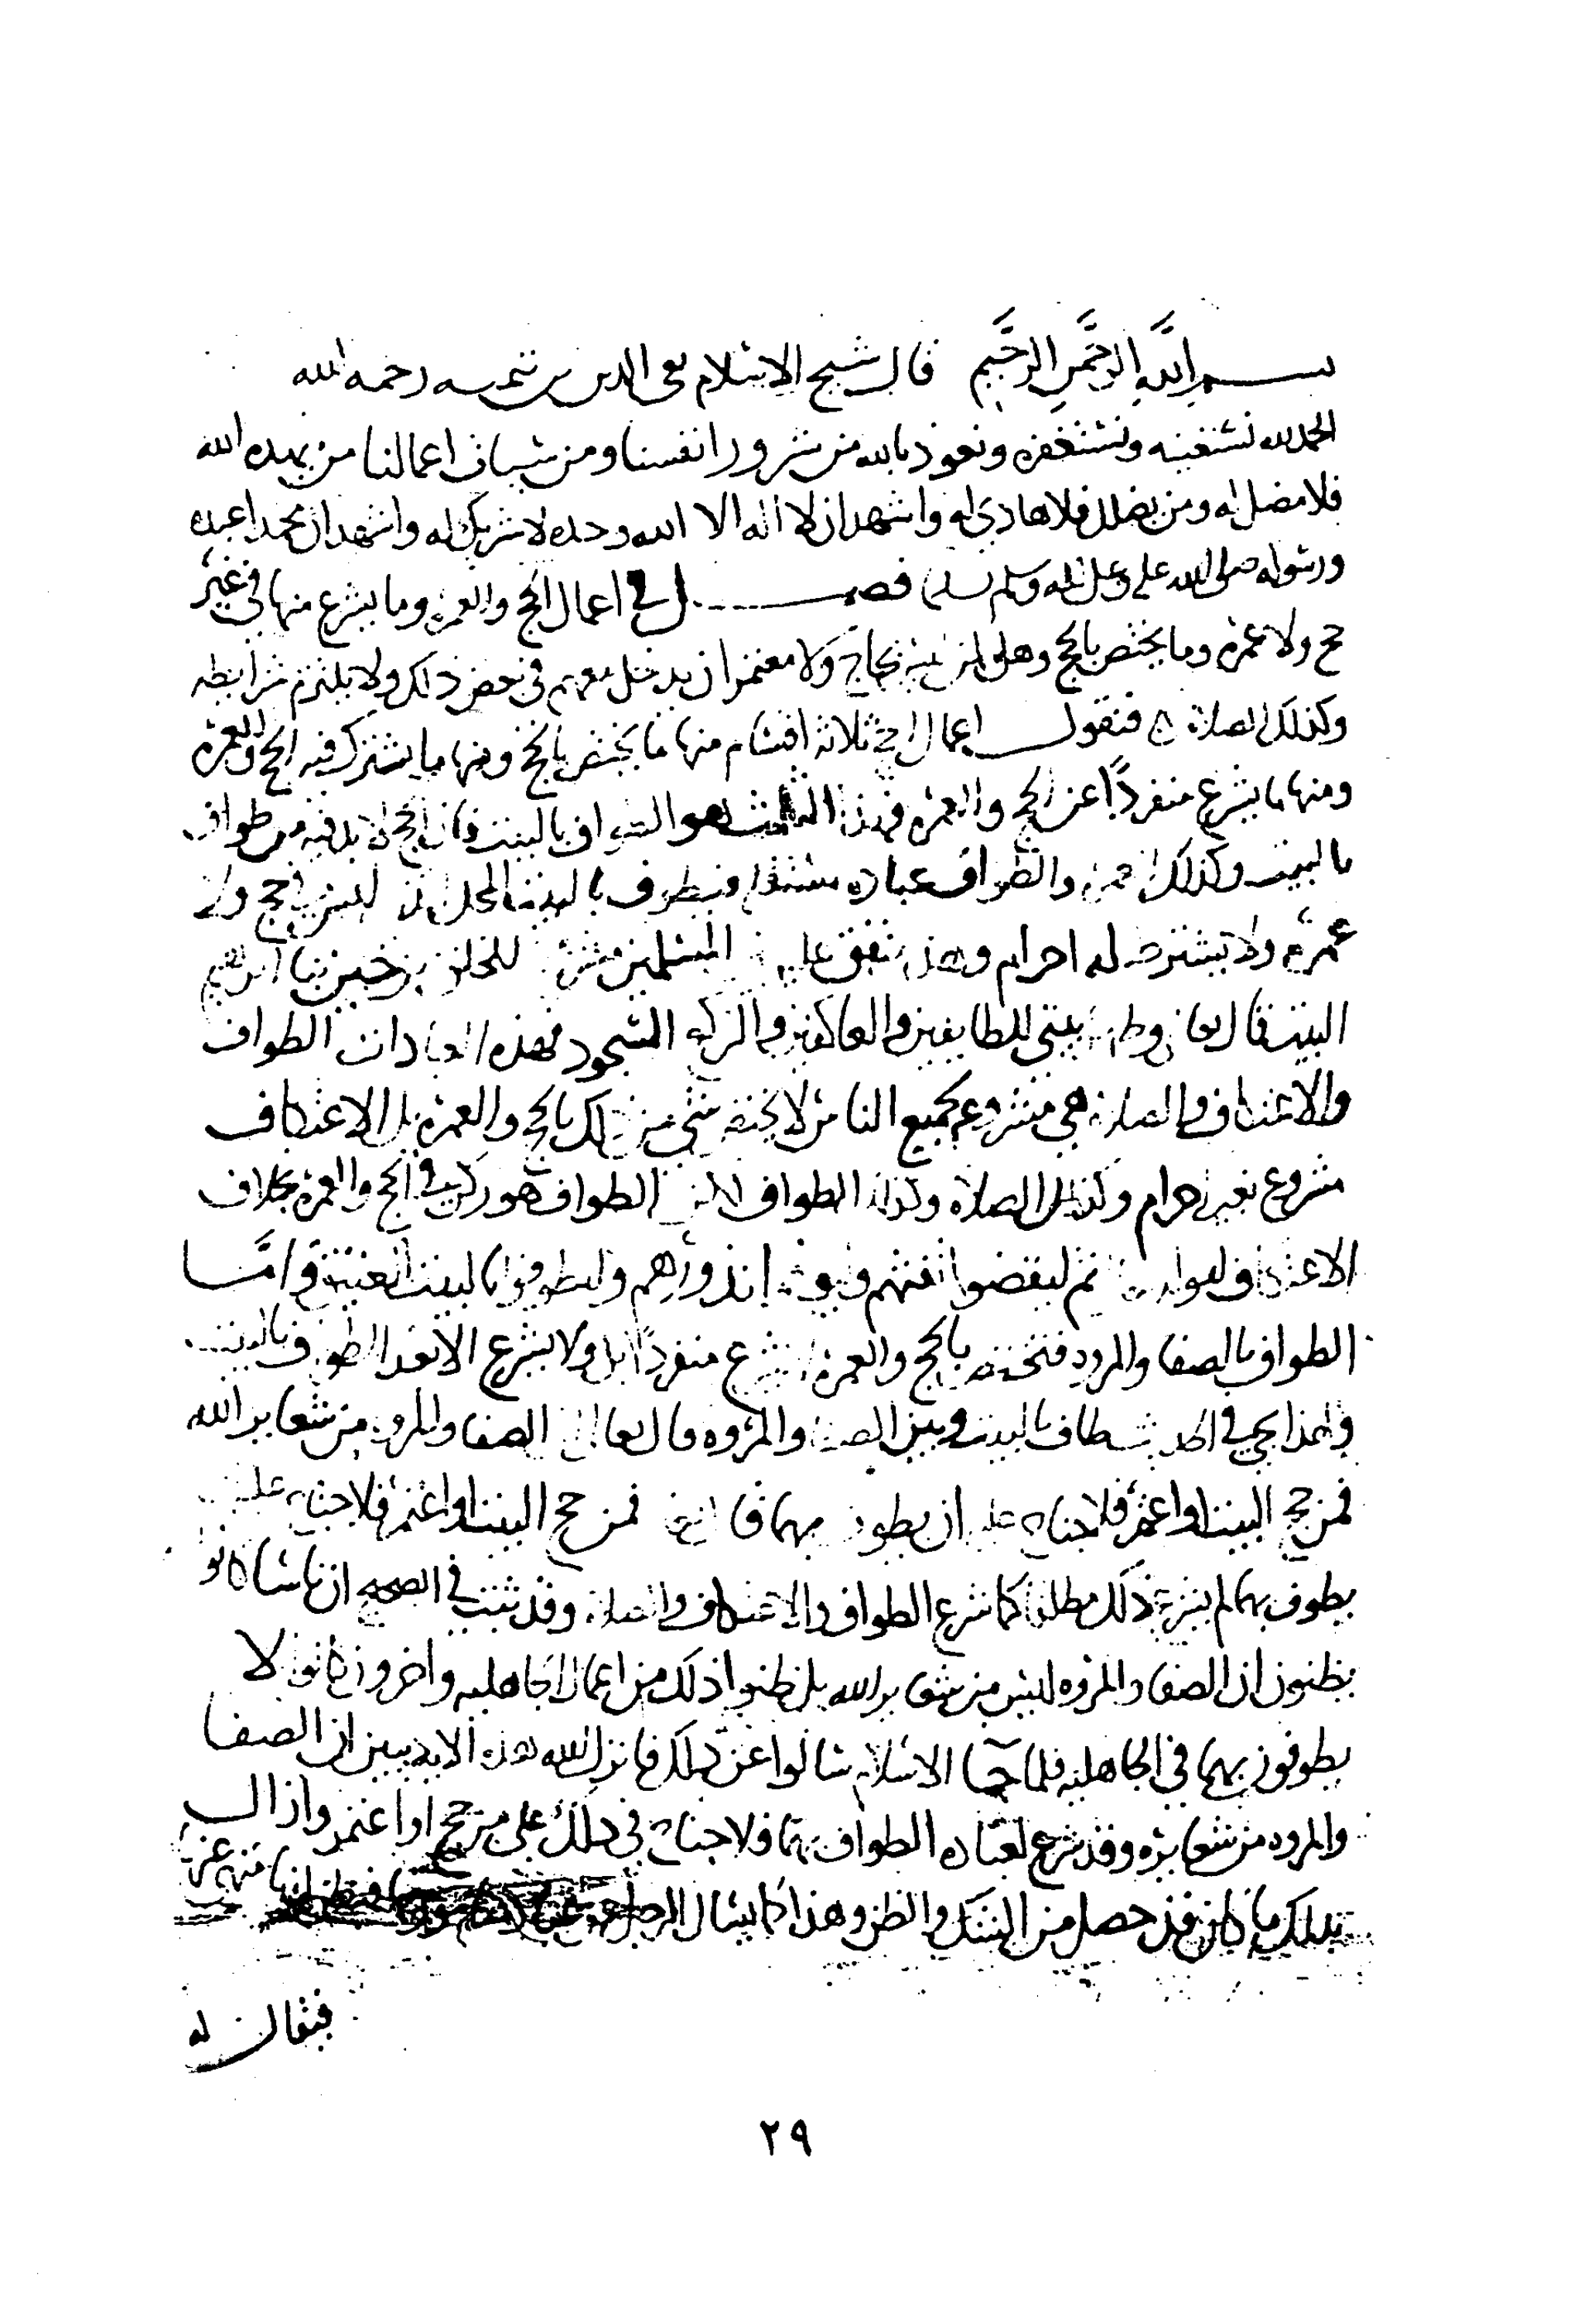 بسم الله الرحمن الرحيم قال شيخ الاسلام تقى الدين بن تيميه رحمه الله
الحمد لله نستعينه ونستغفره ونعوذ بالله من شرور انفسنا ومن سيئات اعمالنا من يهده الله
فلا مضل له ومن يضلل فلا هادي له واشهد ان لا اله الا الله وحده لا شريك له واشهد ان محمدا عبده
ورسوله صلى الله عليه وعلى اله وسلم تسليما فصل في اعمال الحج والعمره وما يشرع منها في غير
حج ولا عمرة وما يختص بالحج وهل لمن ليس بحاج ولا معتمر ان يدخل معهم في بعض ذلك ولا يلتزم شرايطه
وكذلك الصلاة فنقول اعمال الحج ثلاثة اقسام منها ما يختص بالحج ومنها ما يشترك فيه الحج والعمرة
ومنها ما يشرع منفردًا عن الحج والعمره فهذا الثالث هو الطواف بالبيت فان الحج لا بد فيه من طواف
بالبيت وكذلك العمرة والطواف عباده مستقله فيطوف بالبيت المحل الذي ليس في حج ولا
عمرة ولا يشترط له احرام وهذا متفق عليه المسلمين للخلق من حين بنا ابراهيم
البيت قال تعالى وطهر بيتي للطايفين والعاكفين والركع السجود فهذه العبادات الطواف
والاعتكاف والصلاة هي مشروعه لجميع الناس لا يختص شي من ذلك بالحج والعمره بل الاعتكاف
مشروع بغير احرام وكذلك الصلاة وكذلك الطواف لكن الطواف هو ركن في الحج والعمرة بخلاف
الاعتكاف لقوله ثم ليقضوا تفثهم وليوفوا نذورهم وليطوفوا بالبيت العتيق وامَّا
الطواف بالصفا والمروه فتختص بالحج والعمرة يشرع منفردًا بل ولا يشرع الا بعد الطواف بالبيت
ولهذا يجي في الحديث طاف بالبيت وبين الصفا والمروه قال تعالى ان الصفا والمروه من شعاير الله
فمن حج البيت او اعتمر فلا جناح عليه ان يطوف بهما فمن حج البيت او اعتمر فلا جناح عليه
يطوف بهما لم يشرع ذلك مطلقا كما شرع الطواف والاعتكاف والصلاة وقد ثبت في الصحيح ان ناسا كانوا
يظنون ان الصفا والمروه ليس من شعاير الله بل ظنوا ذلك من اعمال الجاهليه واخرون كانوا لا
يطوفون بهما في الجاهليه فلما جآ الاسلام سالوا عن ذلك فانزل الله هذه الايه يبين ان الصفا
والمروه من شعايره وقد شرع لعباده الطواف بهما فلا جناح في ذلك على من حج او اعتمر وازال
بذلك ما كان قد حصل من الشك والظن وهذا كما يسال الرجل
فيقال له
٢٩